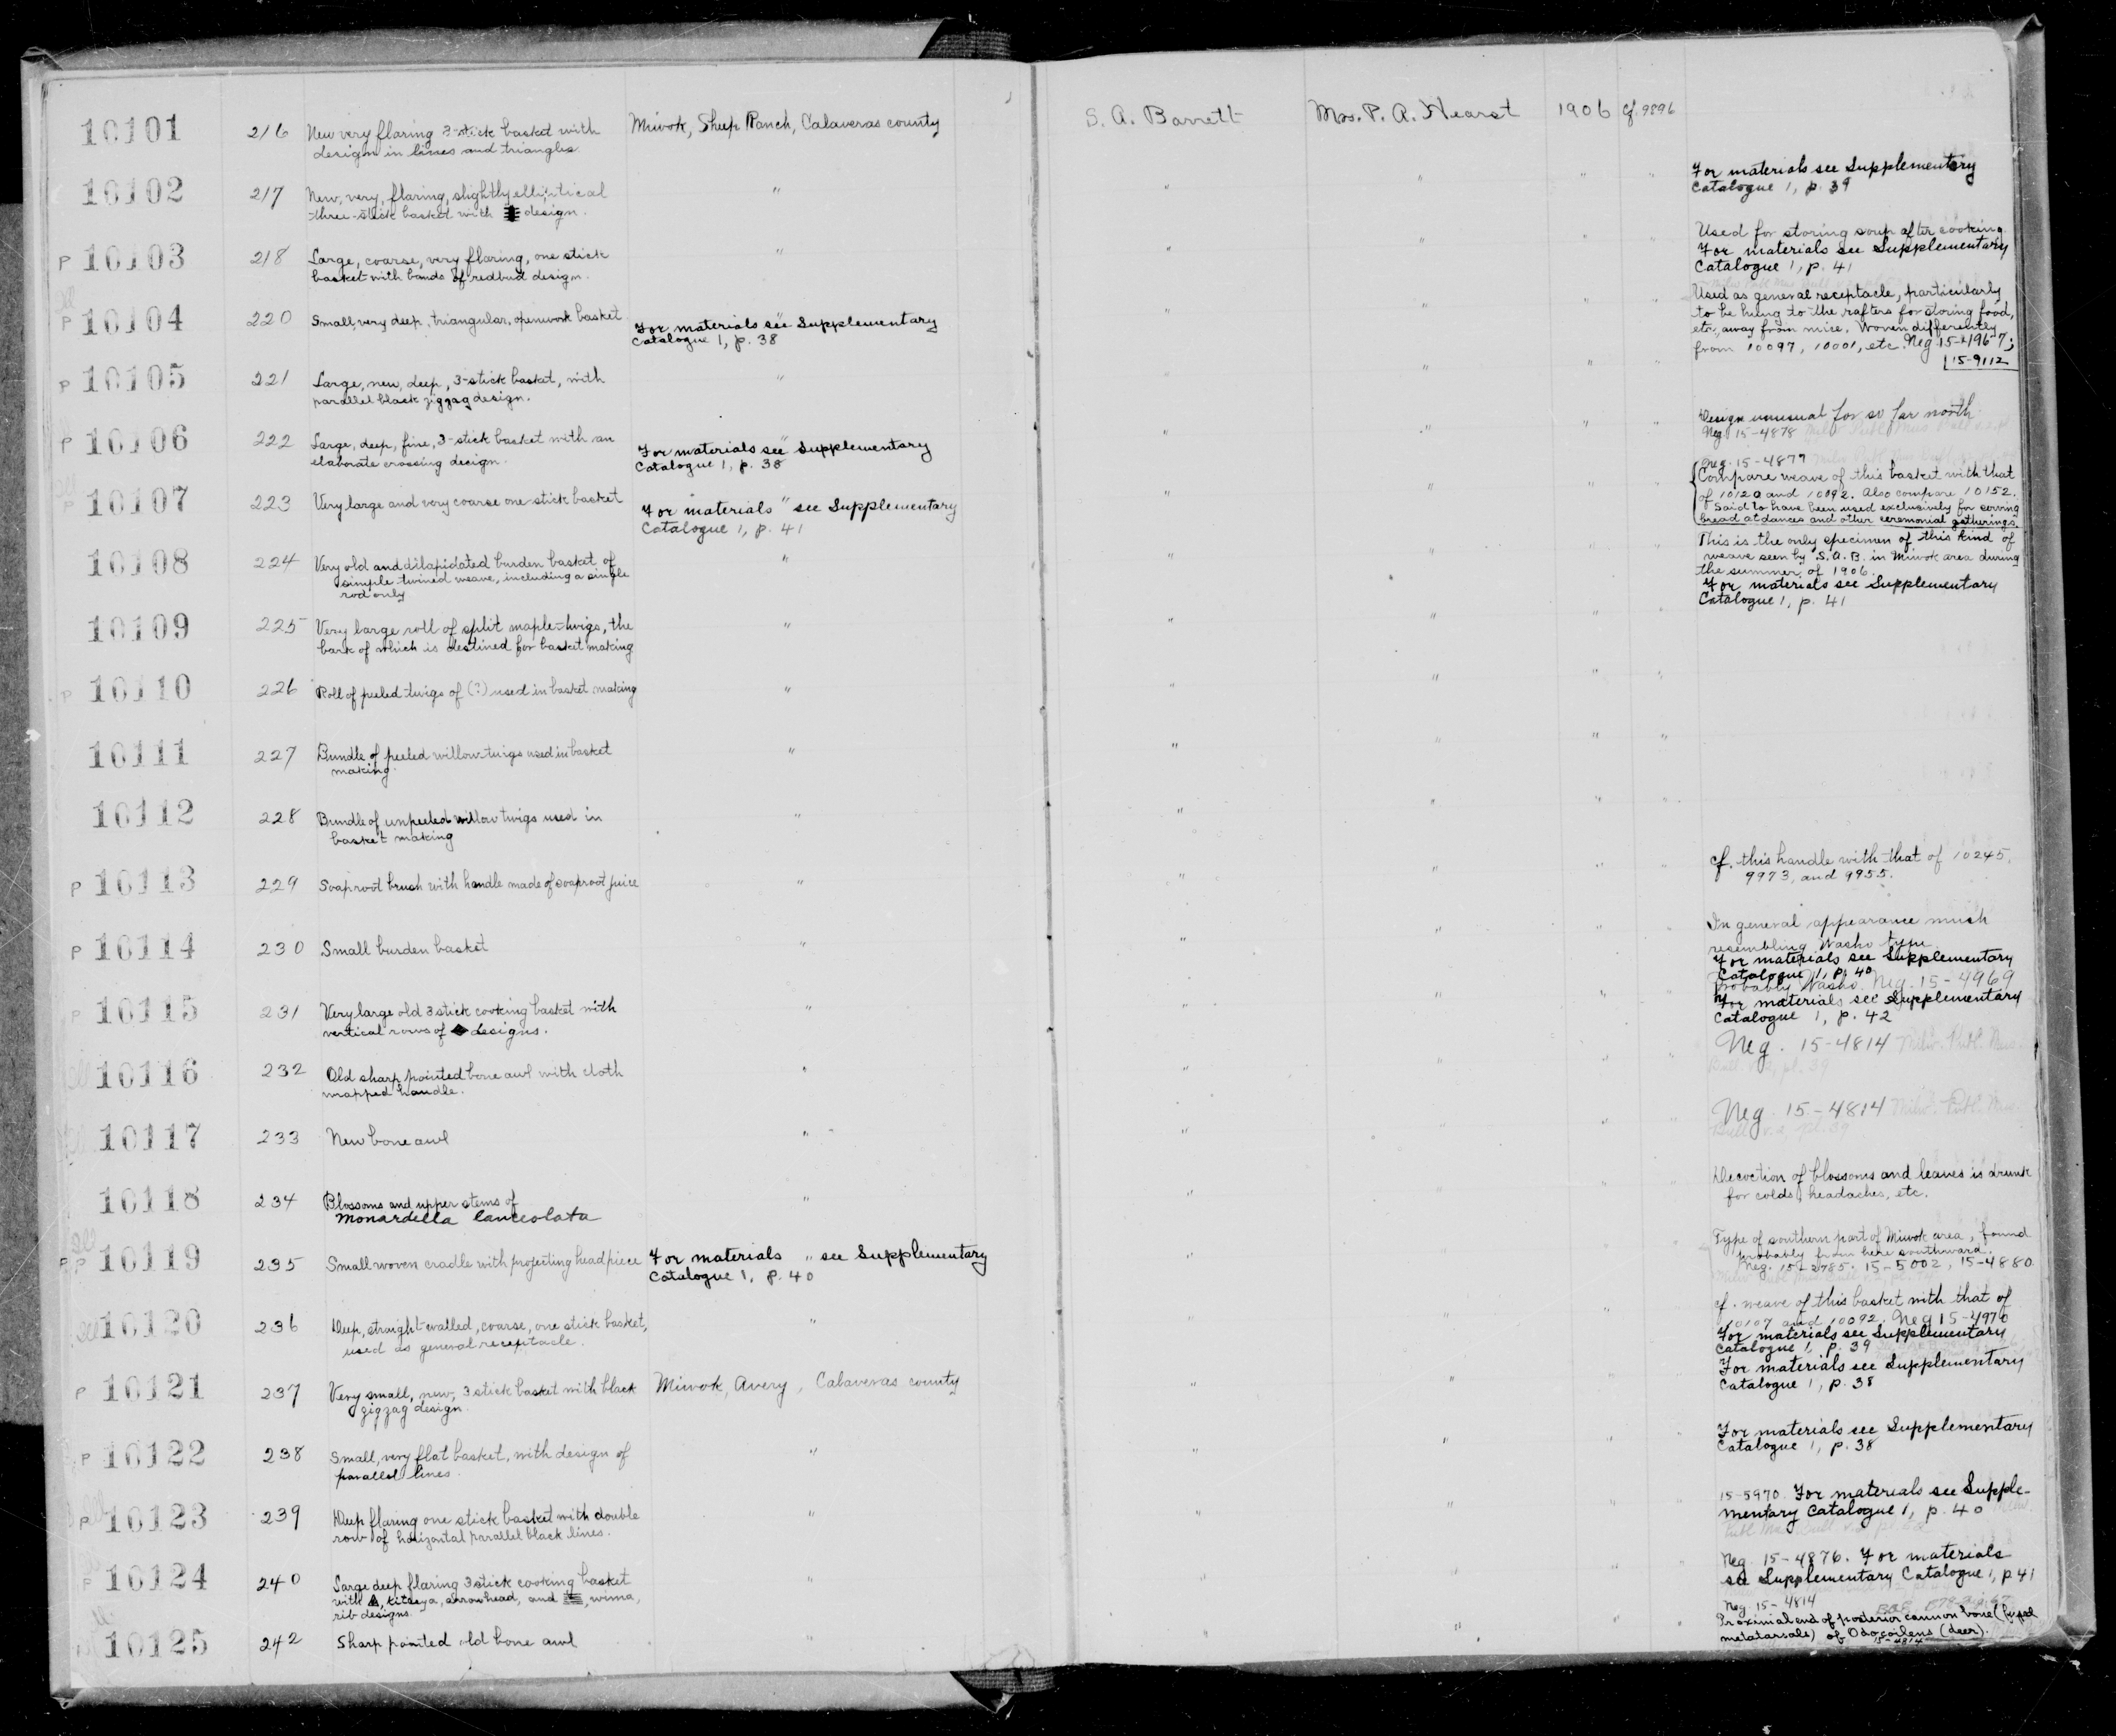 10101 216 New very flaring 3-stick basket with Miwok, Sheep Ranch, Calaveras county S. A. Barrett Mrs. P. A. Hearst 1906 cf. 9896
design in lines and triangles.
10102 217 New, very, flaring, slightly elliptical " " " " " For materials see Supplementary
three-stick basket with design. Catalogue 1, p. 39
P 10103 218 Large, coarse, very flaring, one stick " " " " " Used for storing soup after cooking.
basket with bands of redbud design. For materials see Supplementary
Catalogue 1, p. 41
P 10104 220 Small, very deep, triangular, openwork basket " " " " " Used as general receptacle, particularly
For materials see Supplementary to be hung to the rafters for storing food,
Catalogue 1, p. 38 etc., away from mice. Woven differently
from 10097, 10001, etc. Neg. 15-4196-7;
15-9112
P 10105 221 Large, new, deep, 3-stick basket, with " " " " "
parallel black zigzag design.
P 10106 222 Large, deep, fine, 3-stick basket with an " " " " " Design unusual for so far north
elaborate crossing design. For materials see Supplementary Neg. 15-4878
Catalogue 1, p. 38
P 10107 223 Very large and very coarse one-stick basket " " " " " Neg. 15-4877
For materials see Supplementary Compare weave of this basket with that
Catalogue 1, p. 41 of 10120 and 10092. Also compare 10152.
Said to have been used exclusively for serving
bread at dances and other ceremonial gatherings.
10108 224 Very old and dilapidated burden basket, of " " " " " This is the only specimen of this kind of
simple twined weave, including a single weave seen by S. A. B. in Miwok area during
rod only the summer of 1906.
For materials see Supplementary
Catalogue 1, p. 41
10109 225 Very large roll of split maple-twigs, the " " " " "
bark of which is destined for basket making
P 10110 226 Roll of peeled twigs of (?) used in basket making " " " " "
10111 227 Bundle of peeled willow-twigs used in basket " " " " "
making.
10112 228 Bundle of unpeeled willow twigs used in " " " " "
basket making
P 10113 229 Soaproot brush with handle made of soaproot juice " " " " " cf. this handle with that of 10245,
9973, and 9955.
P 10114 230 Small burden basket " " " " " In general appearance much
resembling Washo type.
For materials see Supplementary
Catalogue 1, p. 40
Probably Washo. Neg. 15-4969
P 10115 231 Very large old 3 stick cooking basket with " " " " " For materials see Supplementary
vertical rows of designs. Catalogue 1, p. 42
10116 232 Old sharp pointed bone awl with cloth " " " " " Neg. 15-4814 Milw. Publ. Mus.
wrapped handle. pl. 39
10117 233 New bone awl " " " " " Neg. 15-4814 Milw. Publ. Mus.
Bull. v. 2, pl. 39
10118 234 Blossoms and upper stems of " " " " " Decoction of blossoms and leaves is drunk
Monardella lanceolata for colds, headaches, etc.
P 10119 235 Small woven cradle with projecting headpiece " " " " " Type of southern part of Miwok area, found
For materials see Supplementary probably from here southward.
Catalogue 1, p. 40 Neg. 15-2785. 15-5002, 15-4880
10120 236 Deep, straight-walled, coarse, one stick basket, " " " " " cf. weave of this basket with that of
used as general receptacle. 10107 and 10092. Neg 15-4970
For materials see Supplementary
Catalogue 1, p. 39
P 10121 237 Very small, new, 3 stick basket with black Miwok, Avery, Calaveras county " " " " For materials see Supplementary
zigzag design. Catalogue 1, p. 38
P 10122 238 Small, very flat basket, with design of " " " " " For materials see Supplementary
parallel lines. Catalogue 1, p. 38
P 10123 239 Deep flaring one stick basket with double " " " " " 15-5970 For materials see Supple-
row of horizontal parallel black lines. mentary Catalogue 1, p. 40
P 10124 240 Large deep flaring 3 stick cooking basket " " " " " Neg. 15-4876. For materials
with , kitseya, arrowhead, and , wima, see Supplementary Catalogue 1, p 41
rib designs.
10125 242 Sharp pointed old bone awl " " " " " Neg. 15-4814
Proximial end of posterior cannon bone (fused
metatarsals) of Odocoileus (deer).
15-4814